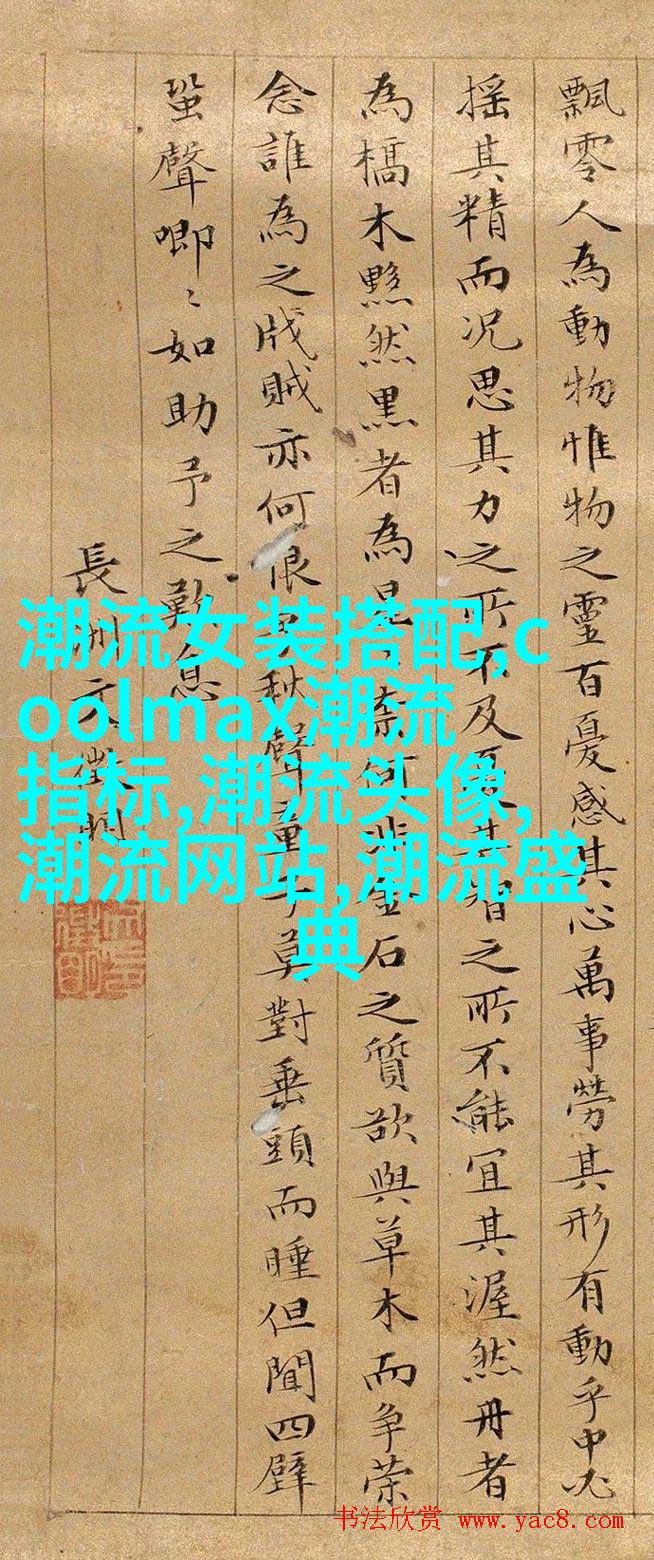 飄零人為動物惟物之靈百憂感其心萬事勞其形有動乎中必
摇其精而况思其力之所不及憂其智之所不能宜其渥然丹者
為橋木黟然黒者為星奈何非金石之質欲與草木而争榮
念誰為之戕賊亦何恨乎秋聲童子莫對垂頭而睡但聞四壁
蛩聲唧〻如助予之歎息
長洲文徵明
潮流女装搭配,c
oolmax潮流
指标,潮流头像,
潮流网站,潮流盛
典
书法欣赏 www.yac8.com